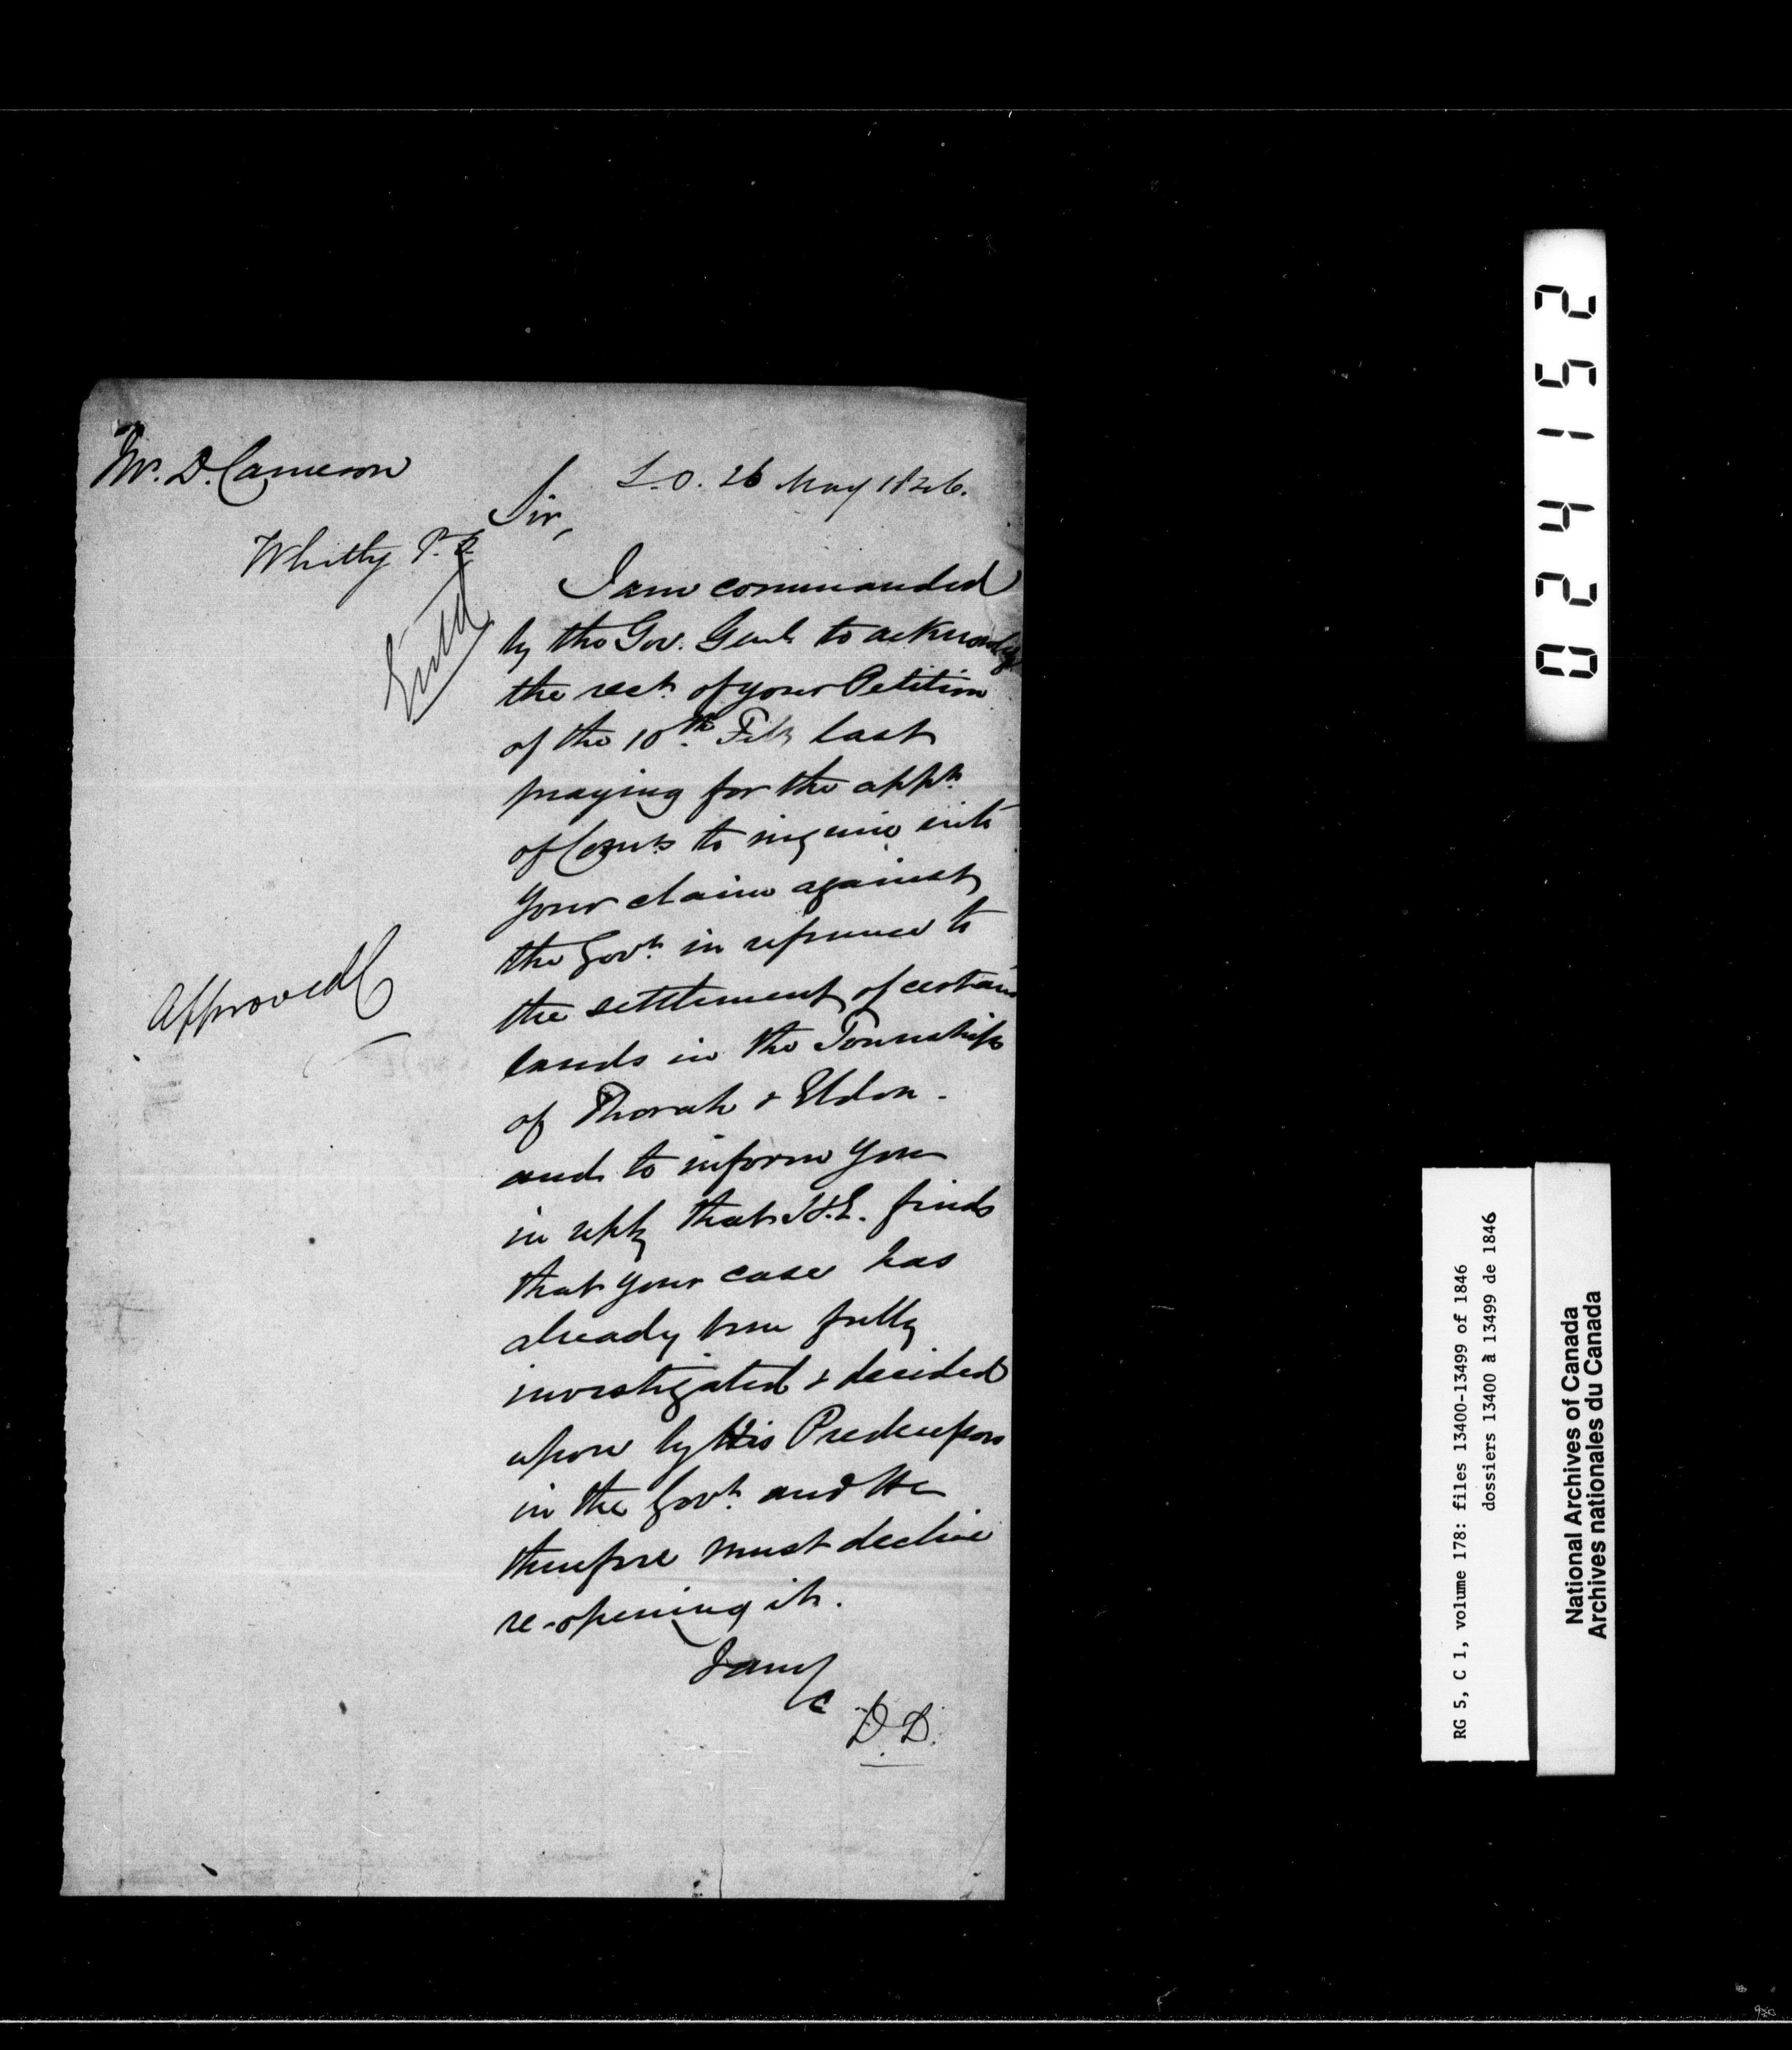 Mr. D. Cameron
Whitby P.O.
Entd
S.O. 26 May 1846.
Sir,
I am commanded
by the Gov. Genl. to acknowledge
the rect. of your Petition
of the 10th. Feby last
praying for the appt.
of Comrs to inquire into
your claim against
the Govt. in reference to
the settlement of certain
lands in the Townships
of Thorah & Eldon.
and to inform you
in reply that H.E. finds
that your case has
already been fully
investigated & decided
upon by His Predecessors
in the Govt. and He
therefore must decline
re-opening it.
I am &c
D.D.
Approved
024152
RG 5, C 1, volume 178: files 13400-13499 of 1846
dossiers 13400 à 13499 de 1846
National Archives of Canada
Archives nationales du Canada